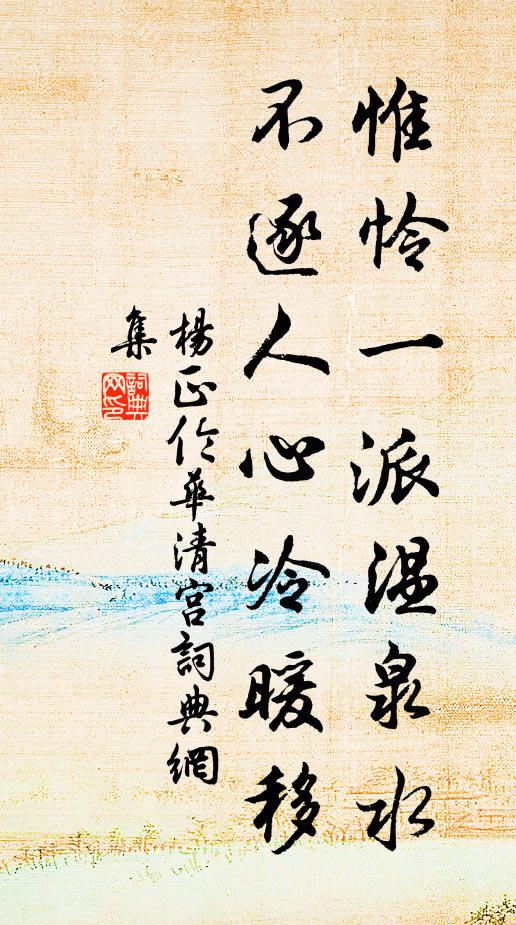 惟怜一派温泉水
不逐人心冷暖移
楊正伦華清宫詞典網
集
詞典
网印